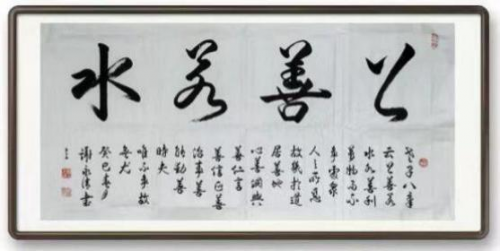 上善若水
老子八章
云上善若
水水善利
萬物而不
争處衆
人之所惡
故幾於道
居善地
心善渊與
善仁言
善信正善
治事善
能動善
時夫
唯不争故
無尤
癸巳春
謝永書